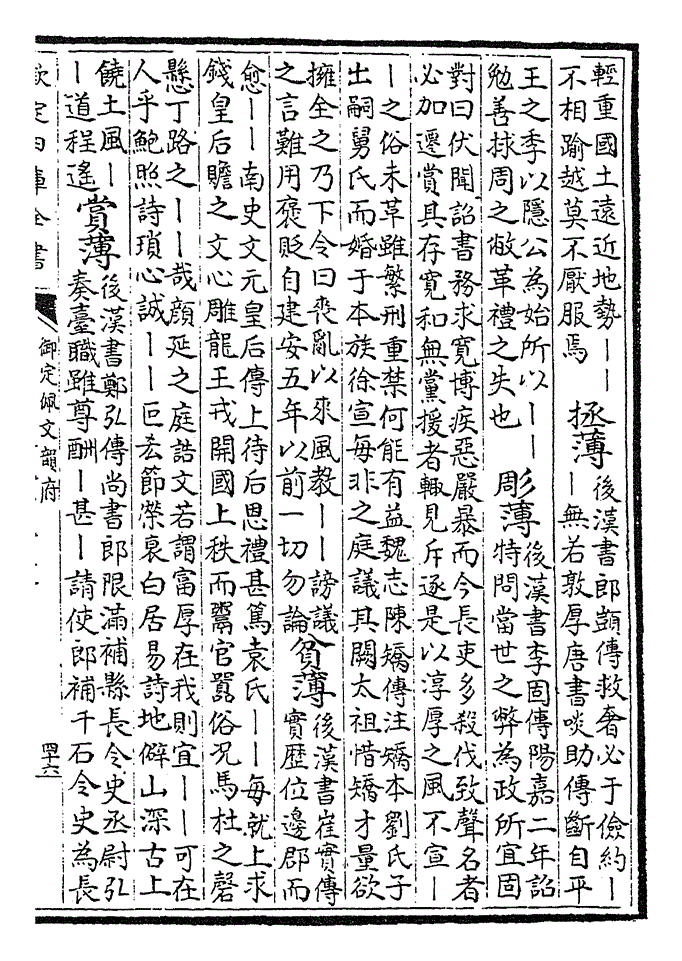 輕重國土遠近地勢——
不相踰越莫不厭服焉
拯薄
後漢書郎顗傳救奢必于儉約—
—無若敦厚唐書啖助傳斷自平
王之季以隱公為始所以——
勉善捄周之敝革禮之失也
彫薄
後漢書李固傳陽嘉二年詔
特問當世之弊為政所宜固
對曰伏聞詔書務求寬博疾惡嚴暴而今長吏多殺伐致聲名者
必加遷賞其存寬和無黨援者輒見斥逐是以淳厚之風不宣—
—之俗未革雖繁刑重禁何能有益魏志陳矯傳注矯本劉氏子
出嗣舅氏而婚于本族徐宣每非之庭議其闕太祖惜矯才量欲
擁全之乃下令曰喪亂以來風教——謗議
之言難用褒貶自建安五年以前一切勿論
貧薄
後漢書崔實傳
實歷位邊郡而
愈——南史文元皇后傳上待后恩禮甚篤袁氏——每就上求
錢皇后贍之文心雕龍王戎開國上秩而鬻官囂俗況馬杜之磬
懸丁路之——哉顏延之庭誥文若謂富厚在我則宜——可在
人乎鮑照詩瑣心誠——叵節榮衰白居易詩地僻山深古上
饒土風—
—道程遙
賞薄
後漢書鄭弘傳尚書郎限滿補縣長令史丞尉弘
奏臺職雖尊酬—甚—請使郎補千石令史為長
欽定四庫全書
御定佩文韻府
四十六